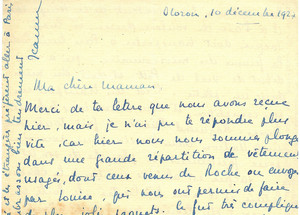 Oloron, 10 décembre 192
Ma chère maman,
Merci de ta lettre que nous avons reçue
hier, mais je n'ai pu te répondre plus
vite, car hier nous nous sommes plongés
dans une grande répartition de vêtements
usagés, dont ceux venus de Roche ou envoyés
par Louise, qui nous ont permis de faire
jolis paquets. Ce fut très compliqué
et les étrangers préfèrent aller à Paris
bien tendrement